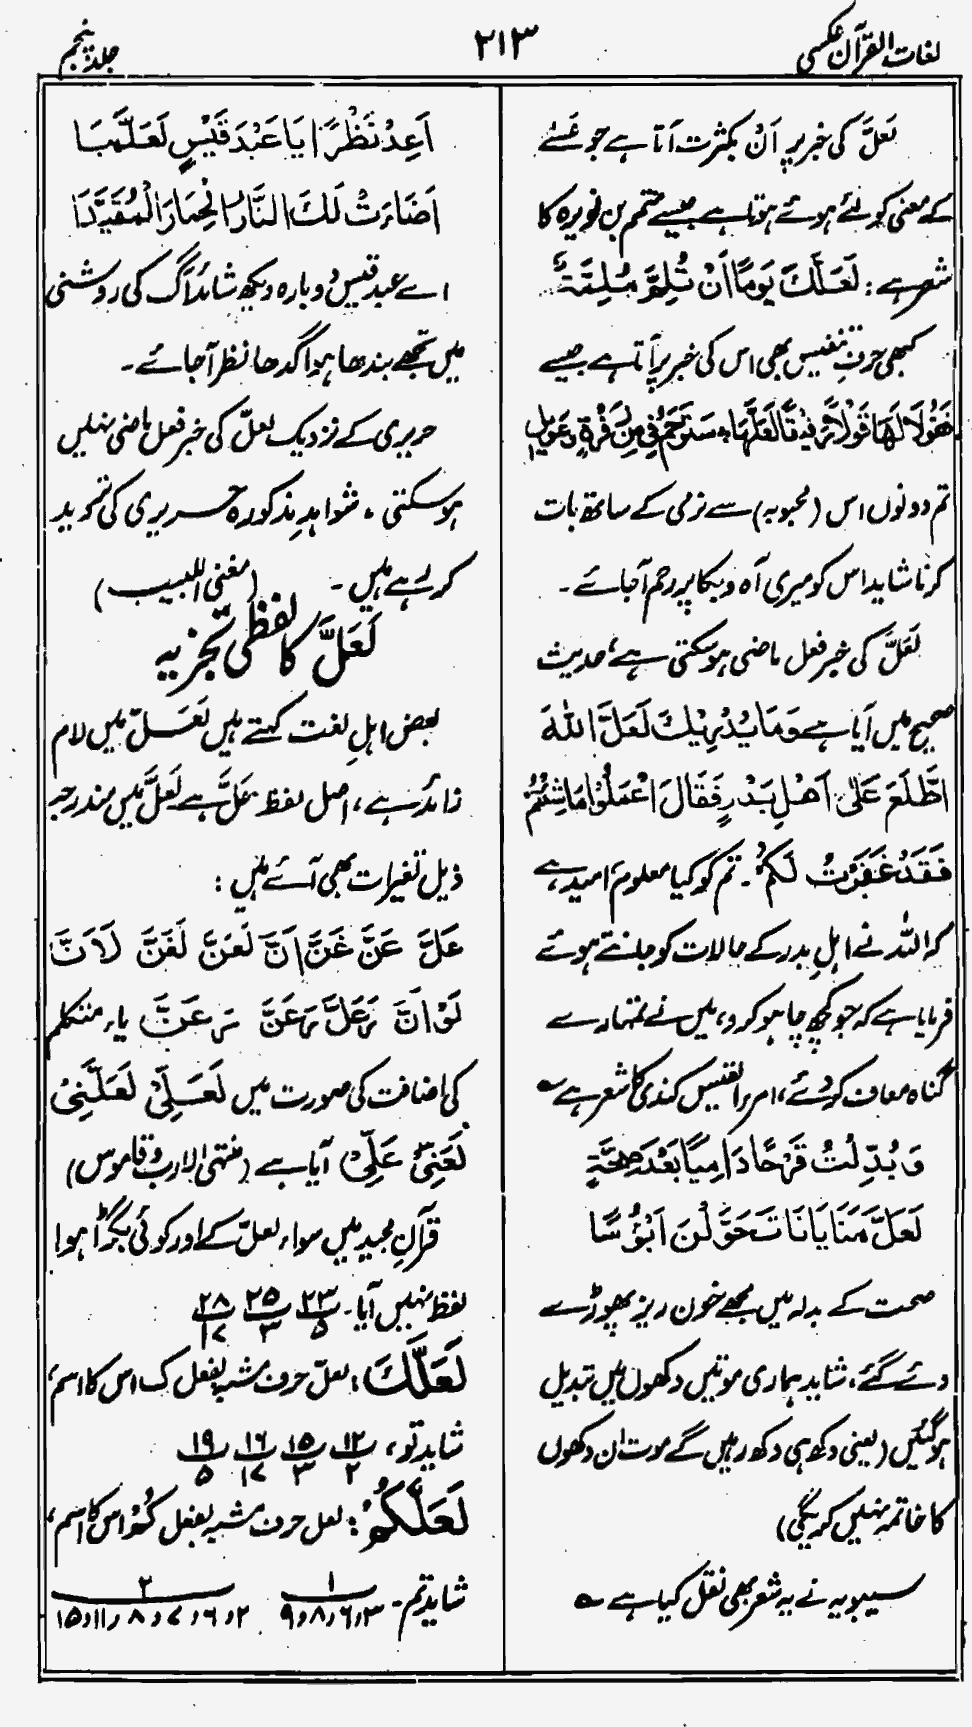 لغات القرآن عکسی
۲۱۳
جلد پنجم
لَعَلَّ کی خبر پر اَنْ بکثرت آتا ہے جو عَسٰے
کے معنی کو لئے ہوئے ہوتا ہے جیسے متمم بن نویرہ کا
شعر ہے: لَعَلَّكَ يَوْمًا اَنْ تُلِمَّ مُلِمَّةٌ
کبھی حرفِ تنفیس بھی اس کی خبر پر آتا ہے جیسے
فَقُوْلَا لَهَا قَوْلًا رَفِيْقًا لَعَلَّهَا، سَتَرْحَمُنِيْ مِنْ زَفْرَةٍ وَعَوِيْلٖ
تم دونوں اس (محبوبہ) سے نرمی کے ساتھ بات
کرنا شاید اس کو میری آہ و بکا پر رحم آجائے۔
لَعَلَّ کی خبر فعل ماضی ہوسکتی ہے، حدیث
صحیح میں آیا ہے وَمَا يُدْرِيْكَ لَعَلَّ اللّٰهَ
اطَّلَعَ عَلٰى اَهْلِ بَدْرٍ فَقَالَ اعْمَلُوْا مَا شِئْتُمْ
فَقَدْ غَفَرْتُ لَكُمْ۔ تم کو کیا معلوم امید ہے
کہ اللہ نے اہلِ بدر کے حالات کو جانتے ہوئے
فرمایا ہے کہ جو کچھ چاہو کرو، میں نے تمہارے
گناہ معاف کر دئے، امرء القیس کندی کا شعر ہے ؎
وَبُدِّلْتُ قَرْحًا دَامِيًا بَعْدَ صِحَّةٍ
لَعَلَّ مَنَايَانَا تَحَوَّلْنَ اَبْؤُسًا
صحت کے بدلہ میں مجھے خون ریز پھوڑے
دئے گئے، شاید ہماری موتیں دکھوں میں تبدیل
ہوگئیں (یعنی دکھ ہی دکھ رہیں گے موت ان دکھوں
کا خاتمہ نہیں کریگی)
سیبویہ نے یہ شعر بھی نقل کیا ہے ؎
اَعِدْ نَظْرًا يَا عَبْدَ قَيْسٍ لَعَلَّمَا
اَضَاءَتْ لَكَ النَّارُ الْحِمَارَ الْمُقَيَّدَا
اے عبد قیس دوبارہ دیکھ شائد آگ کی روشنی
میں تجھے بندھا ہوا گدھا نظر آجائے۔
حریری کے نزدیک لعلّ کی خبر فعل ماضی نہیں
ہوسکتی، شواہدِ مذکورہ حریری کی تردید
کر رہے ہیں۔ (مغنی اللبیب)
لَعَلَّ کا لفظی تجزیہ
بعض اہلِ لغت کہتے ہیں لَعَلَّ میں لام
زائد ہے، اصل لفظ عَلَّ ہے لَعَلَّ میں مندرجہ
ذیل تغیرات بھی آئے ہیں:
عَلَّ عَنَّ غَنَّ اَنَّ لَعَنَّ لَغَنَّ لَاَنَّ
لَوْ اَنَّ رَعَلَّ رَعَنَّ رَغَنَّ یاء متکلم
کی اضافت کی صورت میں لَعَلِّیْ لَعَلَّنِیْ
لَعَنِّیْ عَلِّیْ آیا ہے (منتہی الارب و قاموس)
قرآنِ مجید میں سواء لعلّ کے اور کوئی بگڑا ہوا
لفظ نہیں آیا۔ ۲۳/۵ ۲۵/۳ ۲۸/۱۷
لَعَلَّكَ: لعلّ حرف مشبہ بفعل ک اس کا اسم،
شاید تو، ۱۲/۲ ۱۵/۳ ۱۶/۱۷ ۱۹/۵
لَعَلَّكُمْ: لعل حرف مشبہ بفعل كُمْ اس کا اسم،
شاید تم۔ ۱/۳،۶،۸،۹ ۲/۲،۶،۷،۸،۱۱،۱۵